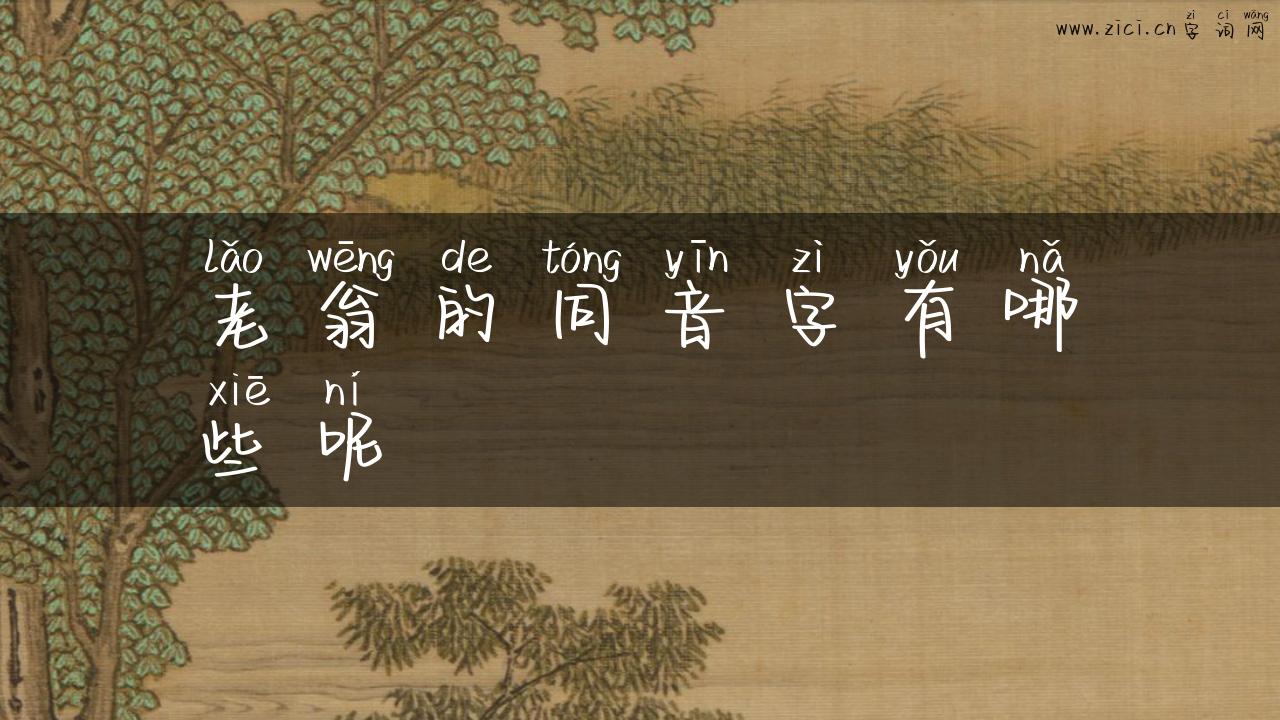 zì cí wǎng
www.zici.cn字词网
lǎo wēng de tóng yīn zì yǒu nǎ
老翁的同音字有哪
xiē ní
些呢